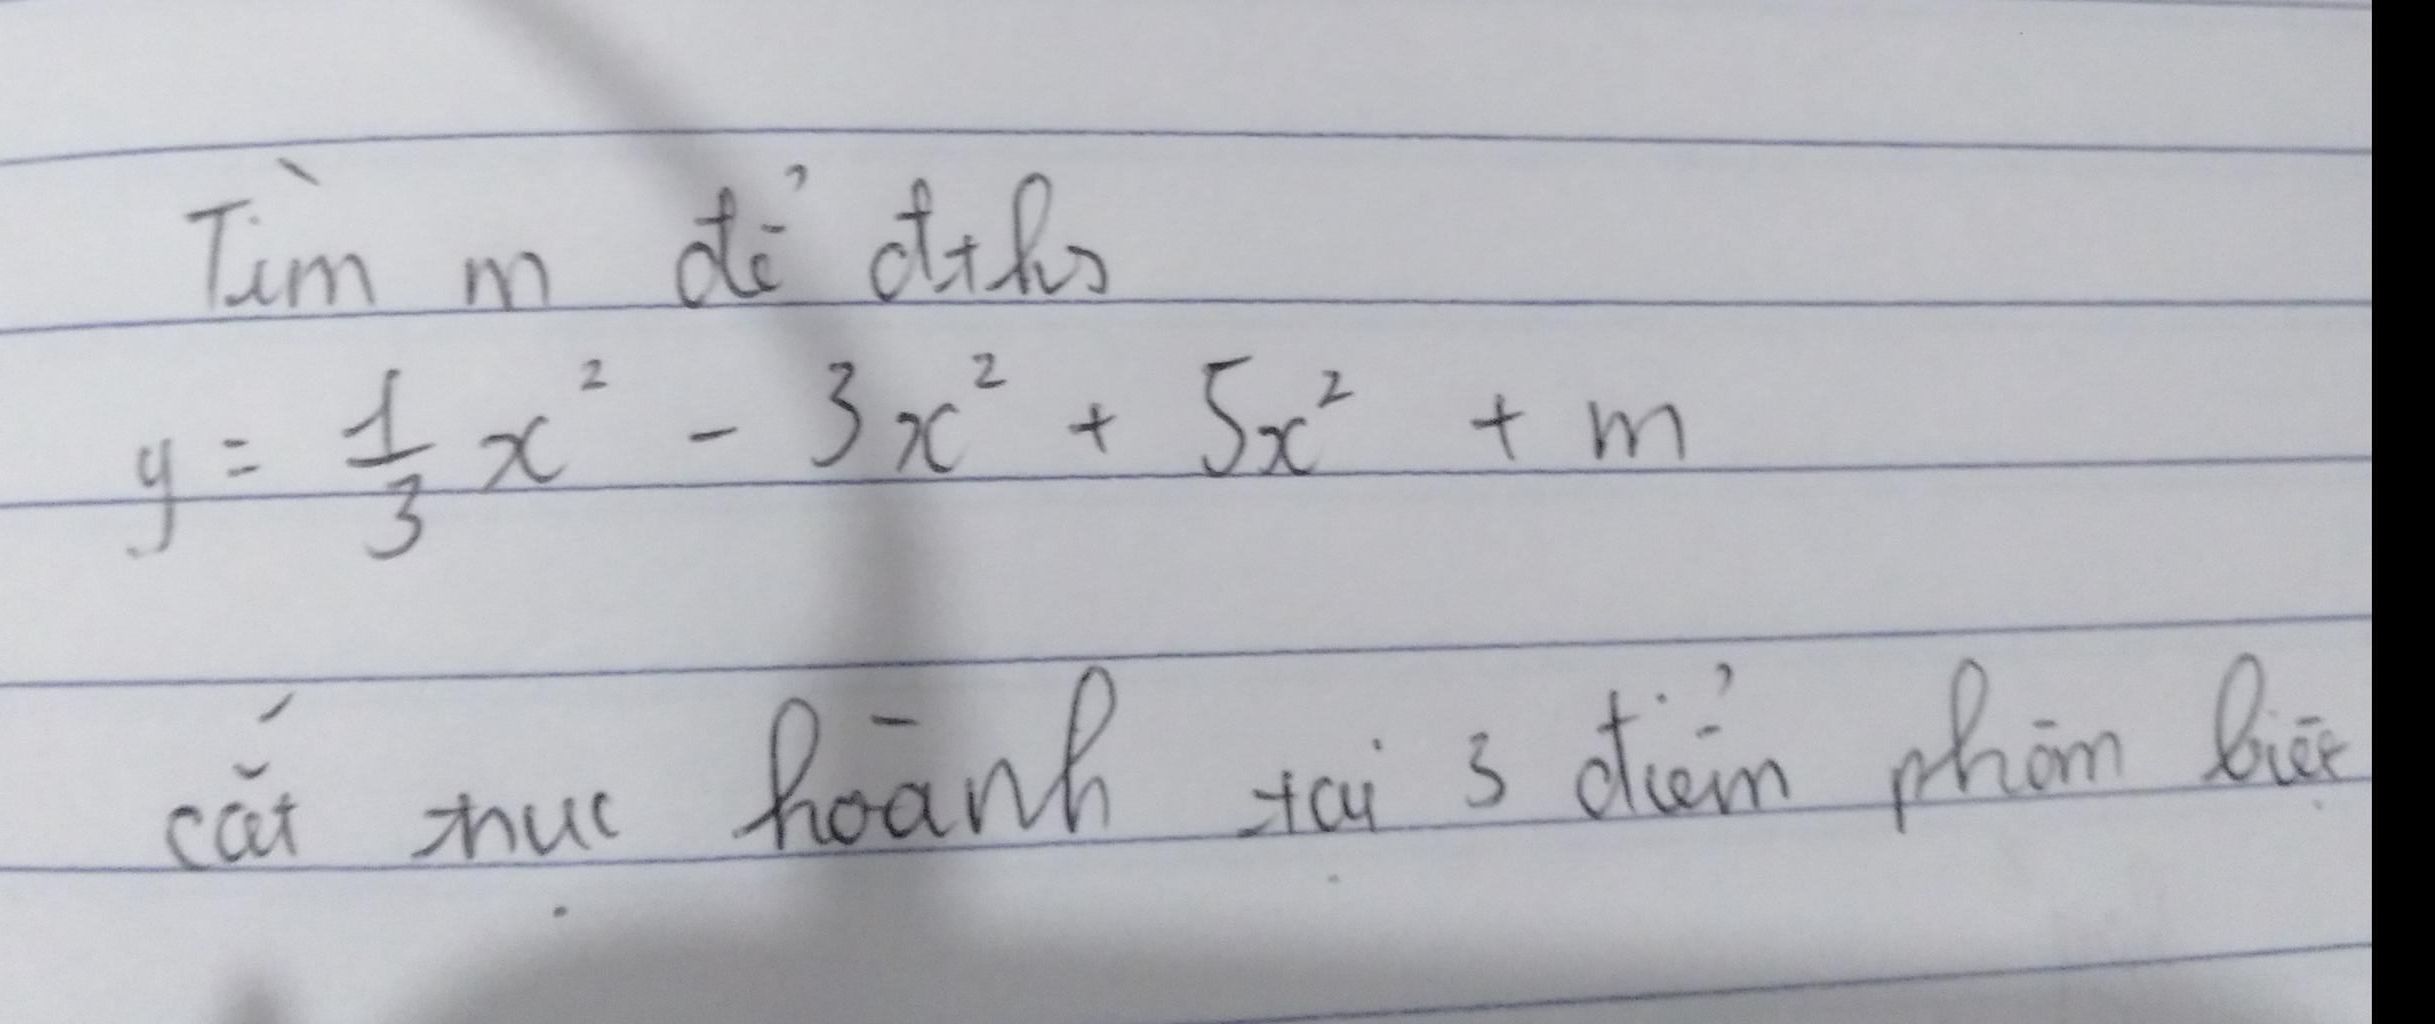 Tìm m để đths
y = 1/3 x² - 3x² + 5x² + m
cắt trục hoành tại 3 điểm phân biệt